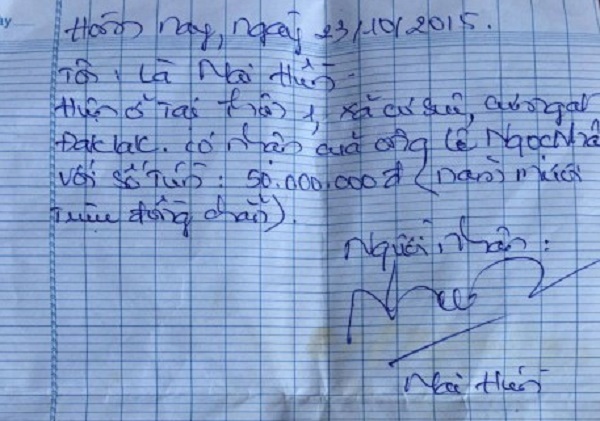 Hôm nay, ngày 23/10/2015.
Tôi: Là Mai Hiển
Hiện ở tại thôn 1, xã cư suê, cưmgar
Đaklak. có nhận của ông Lê Ngọc
với số tiền: 50.000.000đ (năm mươi
triệu đồng chẵn).
Người nhận:
Mai Hiển